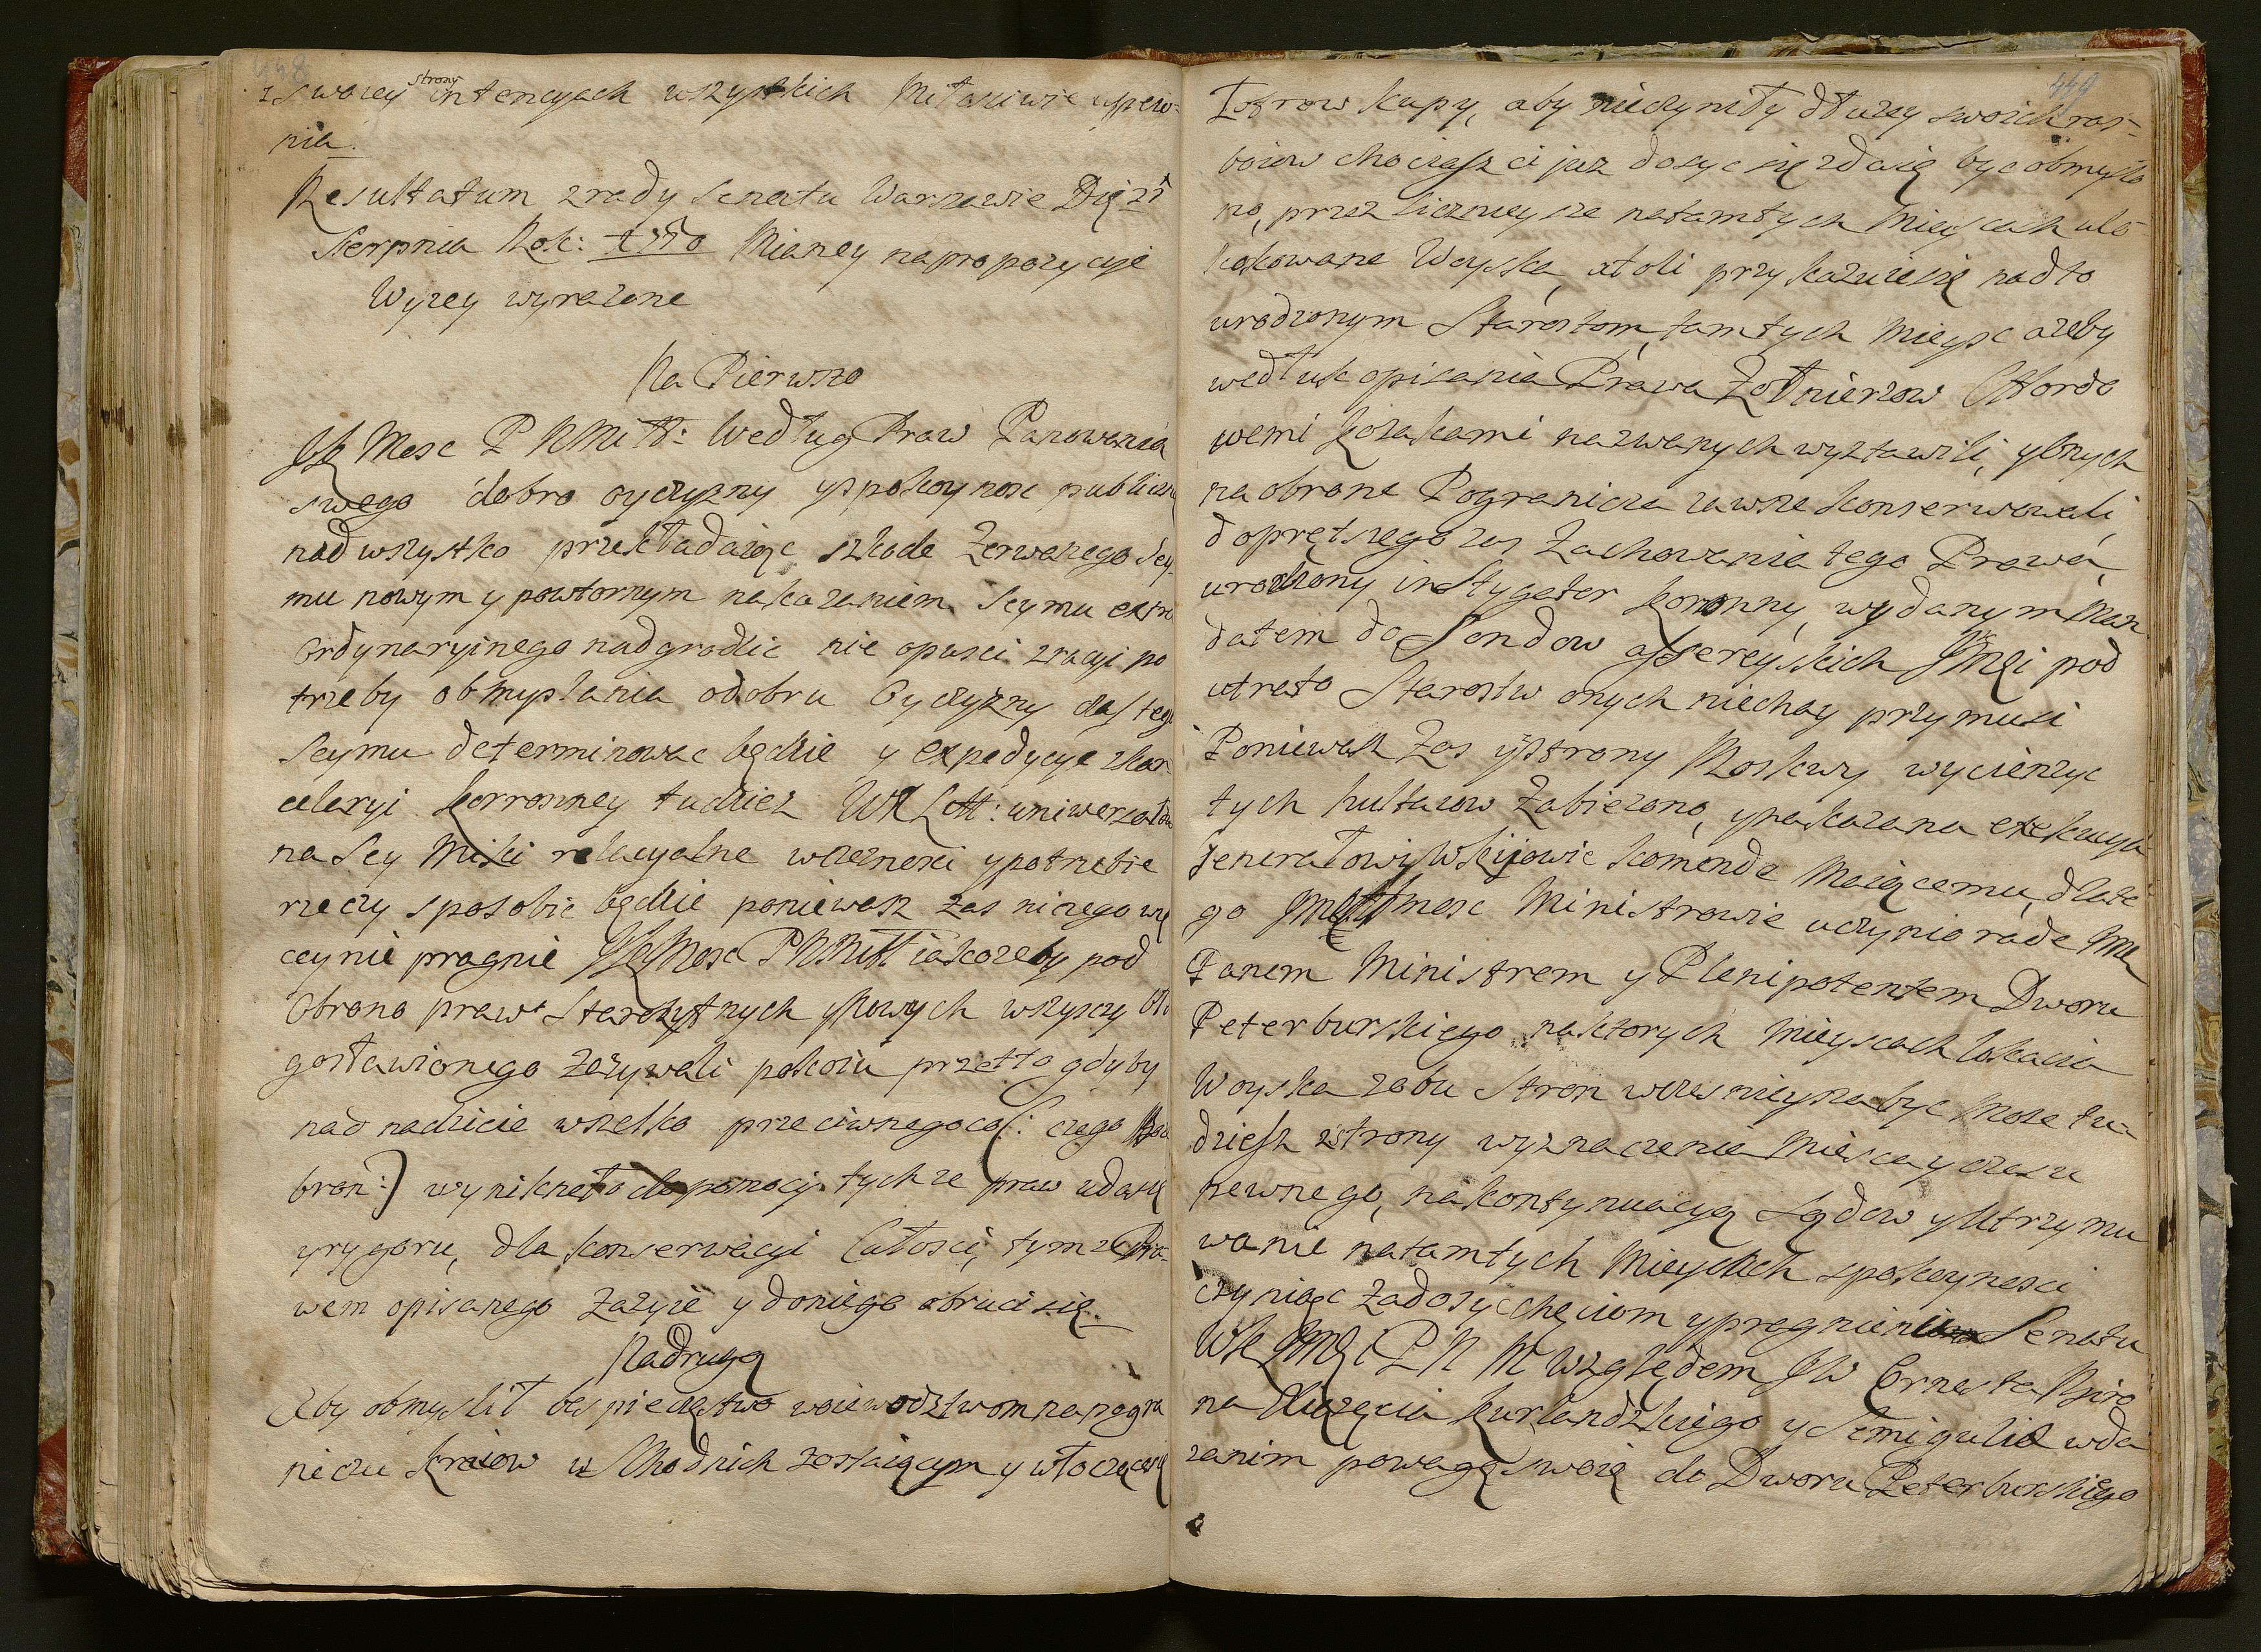 448
z swoiey strony intencyach wszystkich Miłosciwie upew-
nia.
Resultatum z rady Senatu Warszawie Dię 21
Sierpnia Rok: 1750 Mianey na propozycyie
Wyzey wyrazone
Na Pierwszo
JK Mosc P N Mił: Według Praw Panowania
swego dobro oyczyzny y spokoynosc publiczn
nad wszystko przekładaiąc szkode Zerwanego Sey-
mu nowym y powtornym nakazaniem Seymu extra
Ordynaryinego nadgrodzic nie opusci z racyi po
trzeby obmyslania o dobru Oyczyzny czas tego
Seymu determinowac będzie y expedycye z kan
celaryi Korronney tudziez WXLitt: uniwersałow
na Seymiki relacyalne wczesnosci y potrzebie
rzeczy sposobic będzie poniewasz zas niczego wię
cey nie pragnie JKMosc PNMił iako zeby pod
Obrono praw Starozytnych y Nowych wszyscy bło
gosławionego Zazywali pokoiu przetto gdyby
nad nadzieie wszelko przeciwnego co (: czego Boze
bron :) wynikneło do pomocy tychze praw uda się
y rygoru, dla konserwacyi Całosci tymze Pra-
wem opisanego Zazyie y do niego obruci się.
Na drugą
Aby obmyslił bespieczęstwo woiewodztwom na pogra
niczu Kraiow w Schodnich zostaiącym y włoczęcęsię
449
Łotrow kupy, aby nieczyniły dłuzey swoich roz-
boiow chociaszci juz dosyc się zdaią byc obmyslo
no, przez licznieysze na tamtych Mieyscach ulo
kokowane Woyska, atoli przykazuie się nadto
urodzonym Starostom, tamtych Mieysc azeby
wedłuk opisania Prawa Zołnierzow Hordo
wemi kozakami nazwanych wystawili, y onych
na obrone Pogranicza zawsze konserwowali,
do prętszego zas Zachowania tego Prawa,
urodzony instygator koronny, wydanym Man
datem do Sondow assesorskich JKMci pod
utrato Starostw onych niechay przymusi
Poniewasz Zas y strony Moskwy wycienzyc
tych hultaiow Zabiezono, y nakazana exekucyia
Jenerałowi w Kijowie komende Maiącemu, dlate
go JmMosc Ministrowie uczynio rade Jm
Panem Ministrem y Plenipotentem Dworu
Peterburskiego, na ktorych Mieyscach lokacia
Woyska z obu Stron wczesnieysza byc Moze tu-
dziesz z strony wyznaczenia Mieysca y czasu
pewnego, na kontynuacyą Sądow y Utrzymu
wanie na tamtych Mieyscach spokoynosci
czyniąc Zadosyc chęciom y pragnieniu Senatu
WK JMci P N M względem JW Ernesta Biro
na Xiązęcia Kurlandzkiego y Semigalii wda
zanim powagą swoią do Dworu Peterburskiego